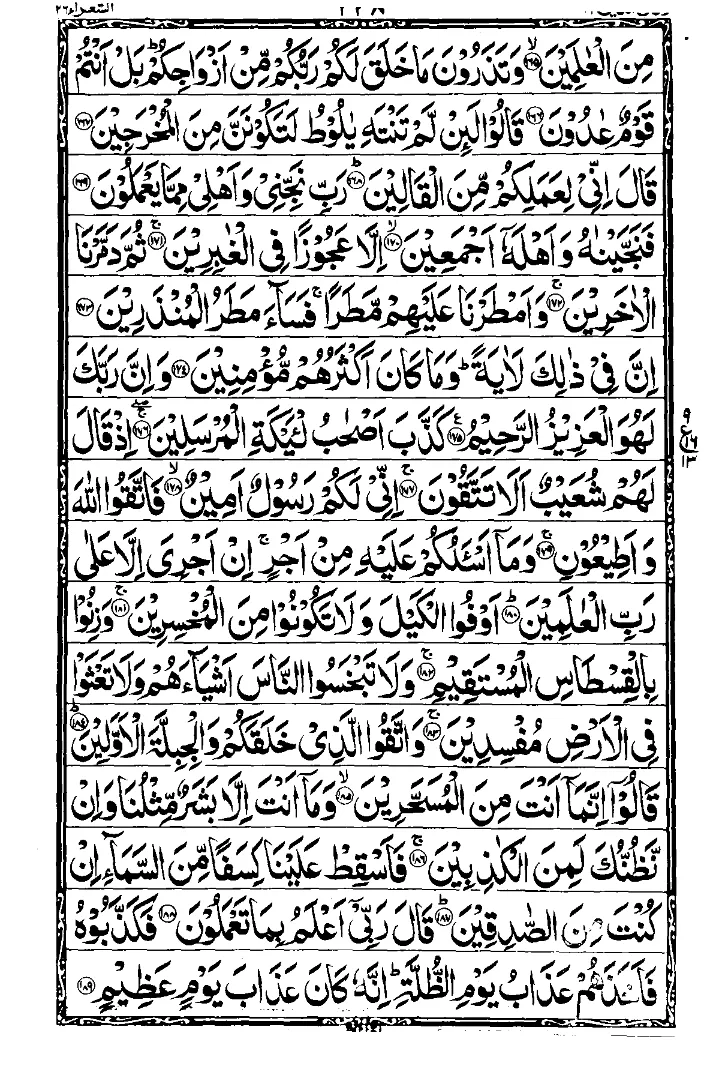 الشعراء ٢٦
مِنَ الْعٰلَمِيْنَ ﴿۱۶۵﴾ۙ وَتَذَرُوْنَ مَا خَلَقَ لَكُمْ رَبُّكُمْ مِّنْ اَزْوَاجِكُمْ ؕ بَلْ اَنْتُمْ
قَوْمٌ عٰدُوْنَ ﴿۱۶۶﴾ قَالُوْا لَىِٕنْ لَّمْ تَنْتَهِ يٰلُوْطُ لَتَكُوْنَنَّ مِنَ الْمُخْرَجِيْنَ ﴿۱۶۷﴾
قَالَ اِنِّیْ لِعَمَلِكُمْ مِّنَ الْقَالِيْنَ ﴿۱۶۸﴾ؕ رَبِّ نَجِّنِیْ وَاَهْلِیْ مِمَّا يَعْمَلُوْنَ ﴿۱۶۹﴾
فَنَجَّيْنٰهُ وَاَهْلَهٗۤ اَجْمَعِيْنَ ﴿۱۷۰﴾ۙ اِلَّا عَجُوْزًا فِی الْغٰبِرِيْنَ ﴿۱۷۱﴾ۚ ثُمَّ دَمَّرْنَا
الْاٰخَرِيْنَ ﴿۱۷۲﴾ۚ وَاَمْطَرْنَا عَلَيْهِمْ مَّطَرًا ۚ فَسَآءَ مَطَرُ الْمُنْذَرِيْنَ ﴿۱۷۳﴾
اِنَّ فِیْ ذٰلِكَ لَاٰيَةً ؕ وَمَا كَانَ اَكْثَرُهُمْ مُّؤْمِنِيْنَ ﴿۱۷۴﴾ وَاِنَّ رَبَّكَ
لَهُوَ الْعَزِيْزُ الرَّحِيْمُ ﴿۱۷۵﴾ۧ كَذَّبَ اَصْحٰبُ لْـَٔيْكَةِ الْمُرْسَلِيْنَ ﴿۱۷۶﴾ۚۖ اِذْ قَالَ
لَهُمْ شُعَيْبٌ اَلَا تَتَّقُوْنَ ﴿۱۷۷﴾ۚ اِنِّیْ لَكُمْ رَسُوْلٌ اَمِيْنٌ ﴿۱۷۸﴾ۙ فَاتَّقُوا اللّٰهَ
وَاَطِيْعُوْنِ ﴿۱۷۹﴾ۚ وَمَاۤ اَسْـَٔلُكُمْ عَلَيْهِ مِنْ اَجْرٍ ۚ اِنْ اَجْرِیَ اِلَّا عَلٰی
رَبِّ الْعٰلَمِيْنَ ﴿۱۸۰﴾ؕ اَوْفُوا الْكَيْلَ وَلَا تَكُوْنُوْا مِنَ الْمُخْسِرِيْنَ ﴿۱۸۱﴾ۚ وَزِنُوْا
بِالْقِسْطَاسِ الْمُسْتَقِيْمِ ﴿۱۸۲﴾ۚ وَلَا تَبْخَسُوا النَّاسَ اَشْيَآءَهُمْ وَلَا تَعْثَوْا
فِی الْاَرْضِ مُفْسِدِيْنَ ﴿۱۸۳﴾ۚ وَاتَّقُوا الَّذِیْ خَلَقَكُمْ وَالْجِبِلَّةَ الْاَوَّلِيْنَ ﴿۱۸۴﴾ؕ
قَالُوْۤا اِنَّمَاۤ اَنْتَ مِنَ الْمُسَحَّرِيْنَ ﴿۱۸۵﴾ۙ وَمَاۤ اَنْتَ اِلَّا بَشَرٌ مِّثْلُنَا وَاِنْ
نَّظُنُّكَ لَمِنَ الْكٰذِبِيْنَ ﴿۱۸۶﴾ۚ فَاَسْقِطْ عَلَيْنَا كِسَفًا مِّنَ السَّمَآءِ اِنْ
كُنْتَ مِنَ الصّٰدِقِيْنَ ﴿۱۸۷﴾ؕ قَالَ رَبِّیْۤ اَعْلَمُ بِمَا تَعْمَلُوْنَ ﴿۱۸۸﴾ فَكَذَّبُوْهُ
فَاَخَذَهُمْ عَذَابُ يَوْمِ الظُّلَّةِ ؕ اِنَّهٗ كَانَ عَذَابَ يَوْمٍ عَظِيْمٍ ﴿۱۸۹﴾
۹
ع ۱۶
۱۳